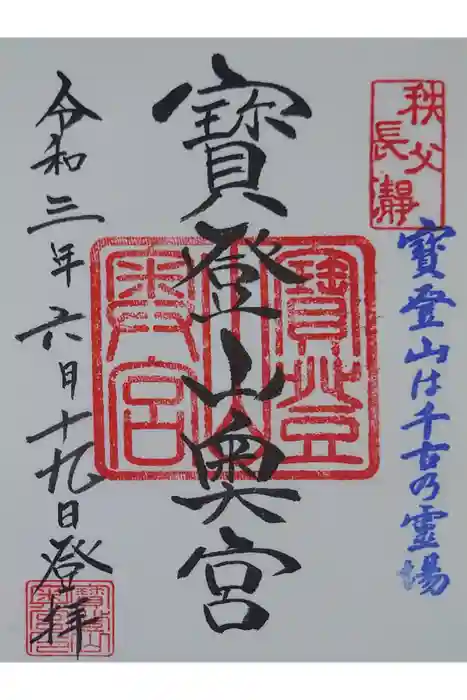 秩父
長瀞
寶登山は千古の霊場
寶登山奥宮
寶登山
奥宮
令和三年六月十九日登拝